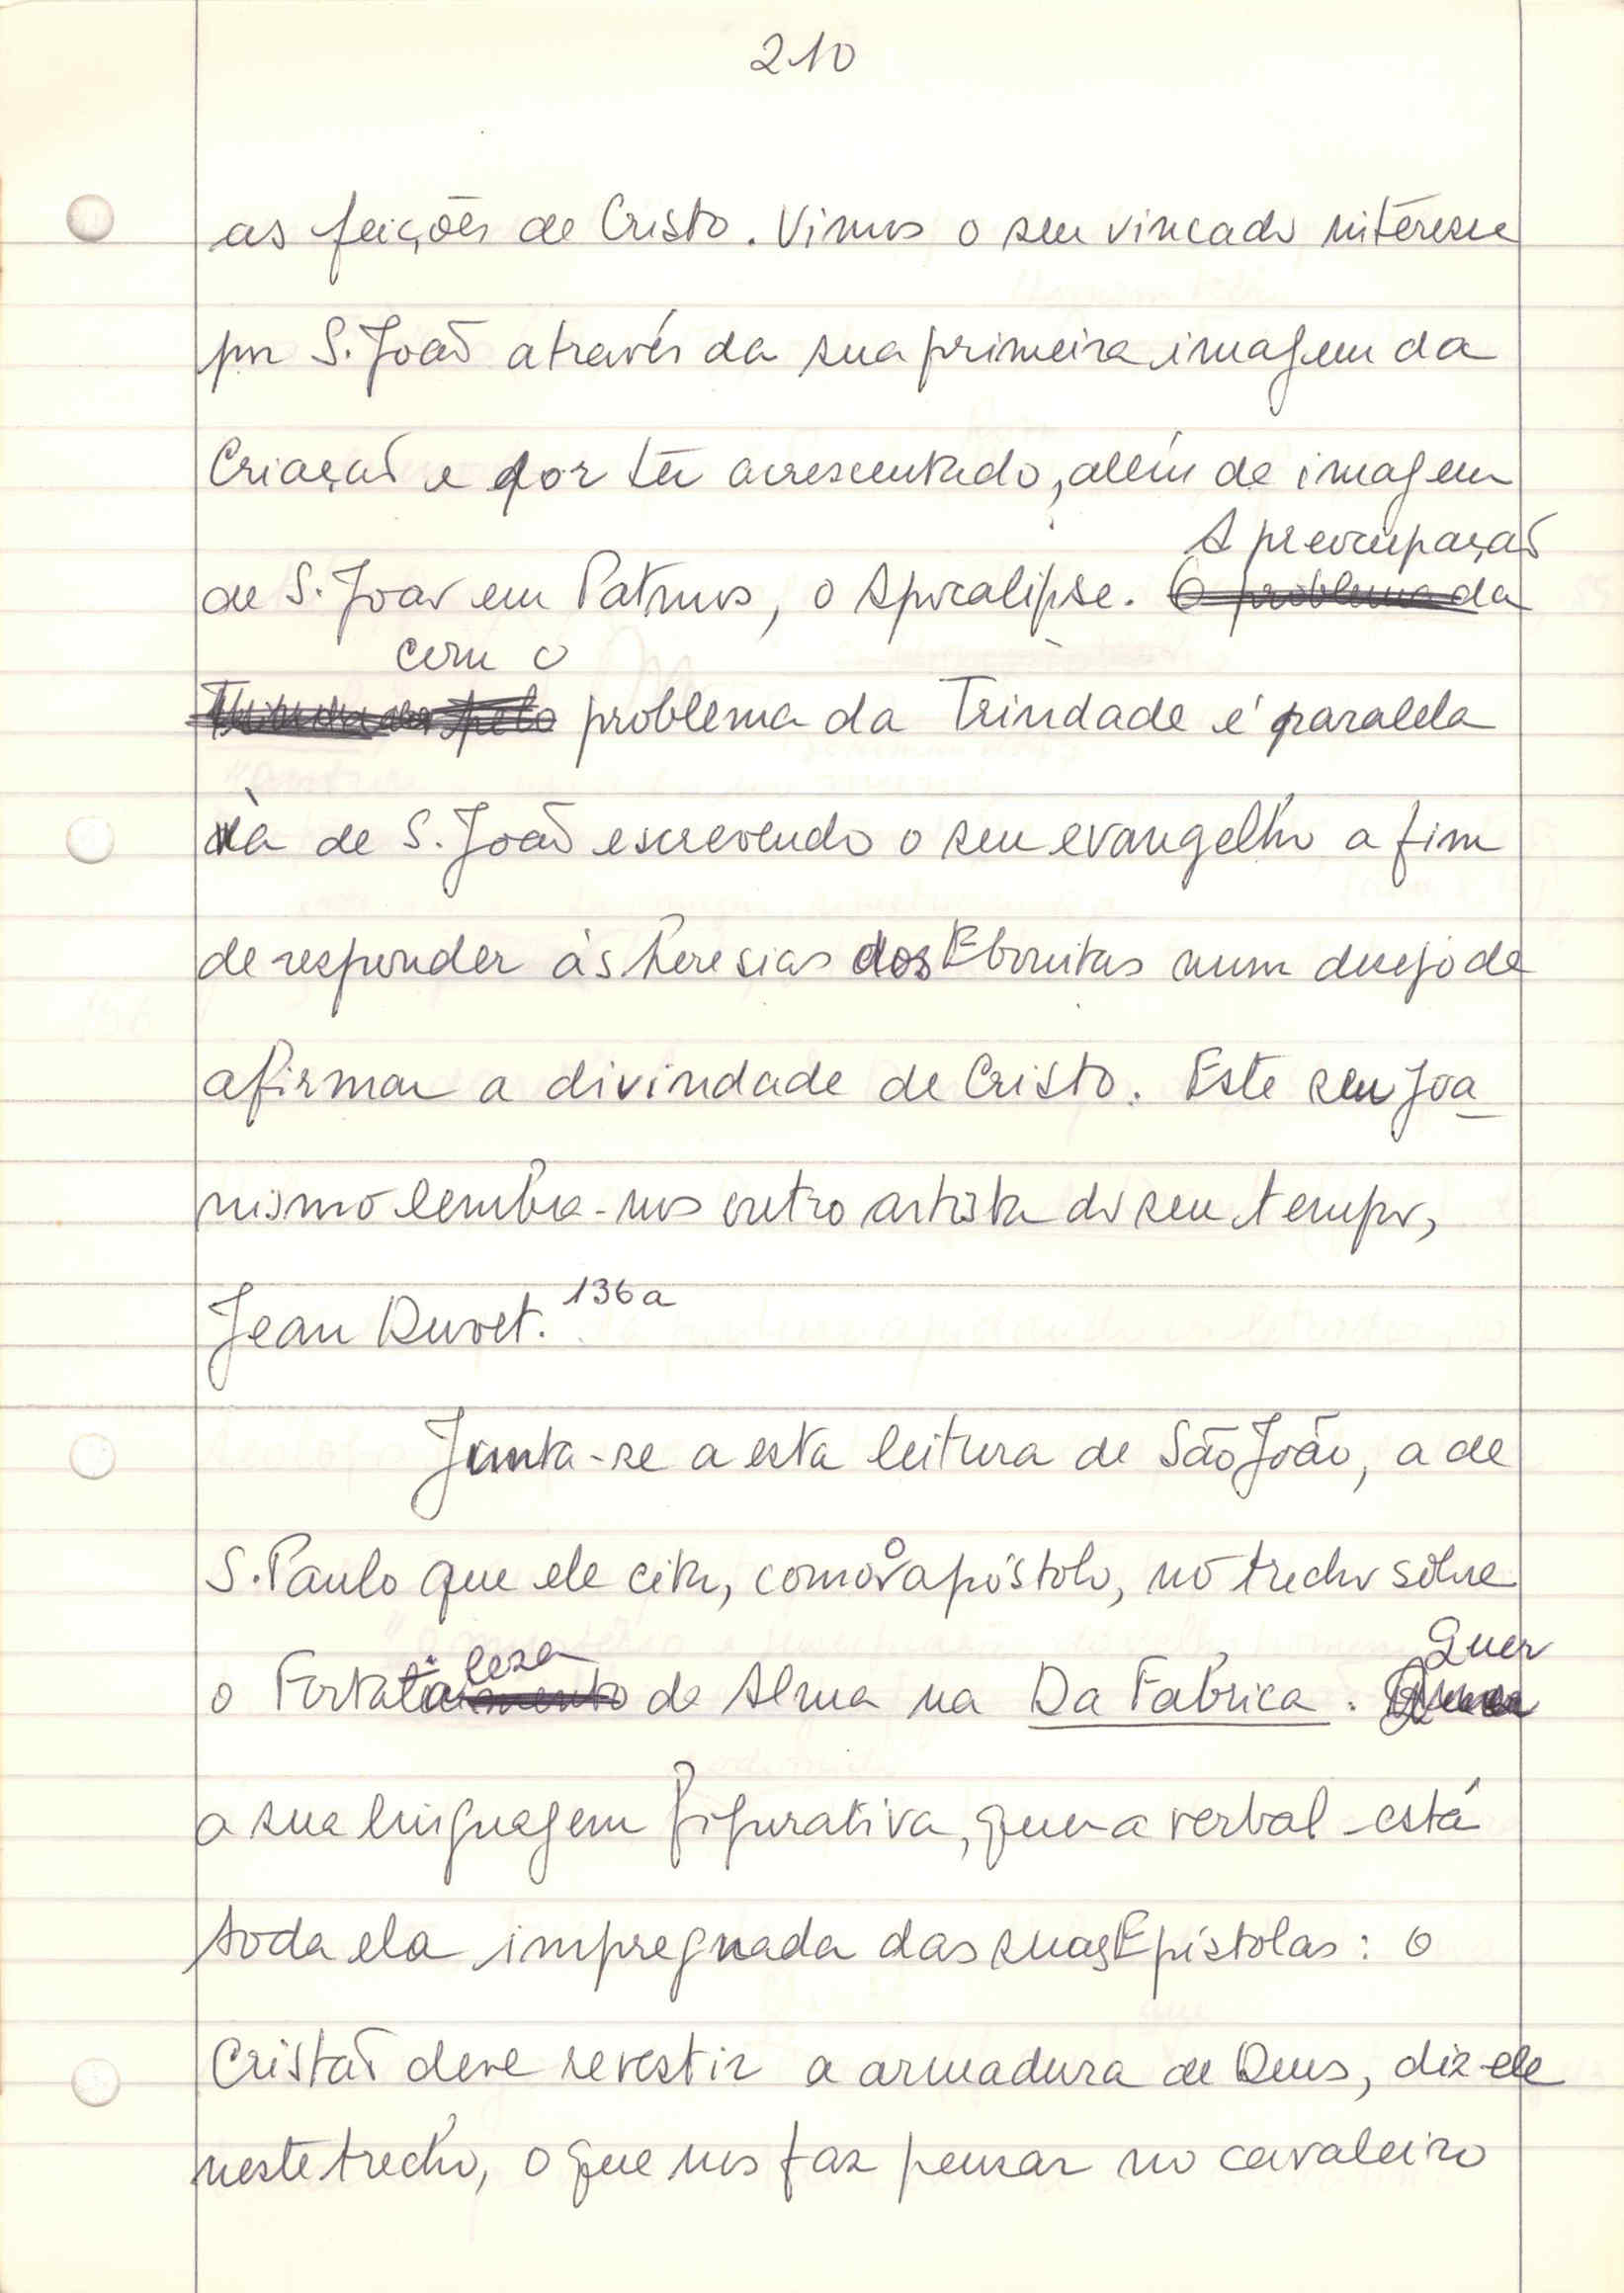 210
as feições de Cristo. Vimos o seu vincado interêsse
por S. João através da sua primeira imagem da
Criação e por ter acrescentado, além de imagem
A preocupação
de S. João em Patmos, o Apocalipse. O problema da
com o
pelo problema da Trindade é paralela
à de S. João escrevendo o seu evangelho a fim
de responder às heresias dos Ebonitas num desejo de
afirmar a divindade de Cristo. Este seu Joa-
nismo lembra-nos outro artista do seu tempo,
Jean Duvet. 136a
Junta-se a esta leitura de São João, a de
S. Paulo que ele cita, como o apóstolo, no trecho sôbre
leza Quer
o Forta da Alma na Da Fabrica.
a sua linguagem figurativa, quer a verbal está
toda ela impregnada das suas Epístolas: o
Cristão deve revestir a armadura de Deus, diz ele
neste trecho, o que nos faz pensar no cavaleiro